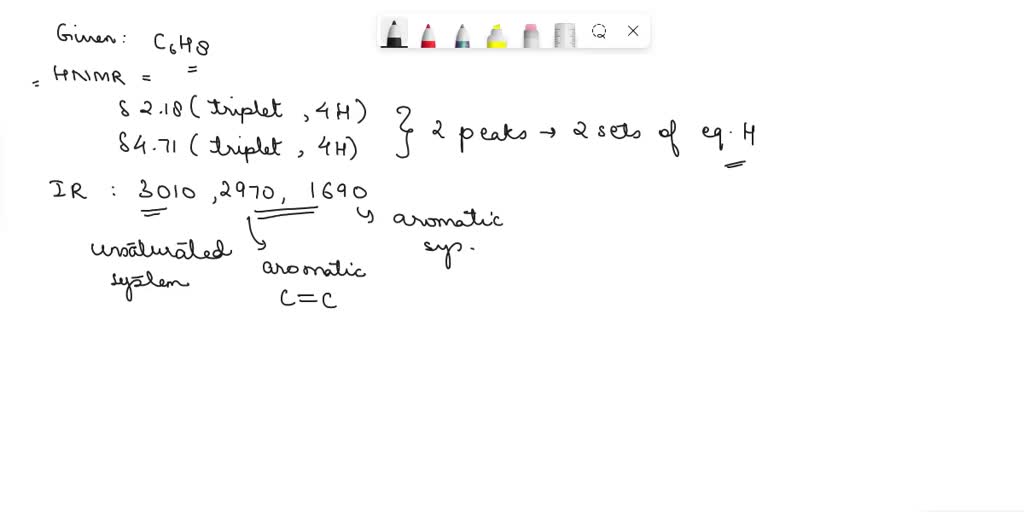 Given: C6H8
HNMR =
δ 2.18 ( triplet , 4H )
δ 4.71 ( triplet , 4H )
} 2 peaks → 2 sets of eq. H
IR : 3010 , 2970 , 1690
unsaturated
system
aromatic
C=C
aromatic
sys.